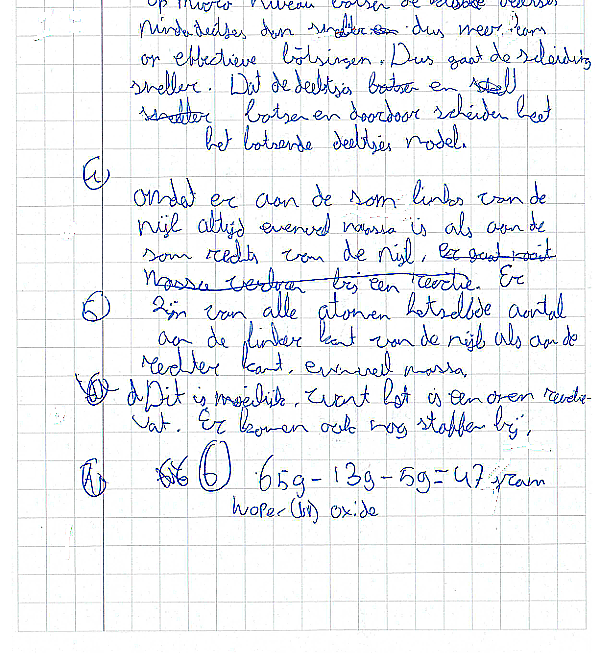 op micro niveau botsen de
minder deeltjes dan sneller en dus meer kans
or effectieve botsingen. Dus gaat de scheiding
sneller. Dat de deeltjes botsen en snell
sneller botsen en doordoor scheiden heet
het botsende deeltjes model.
4) omdat er aan de som links van de
nijl altijd evenveel massa is als aan de
som rechts van de nijl. Er gaat nooit
massa verloren bij een reactie. Er
5) zijn van alle atomen hetzelfde aantal
aan de linker kant van de nijl als aan de
rechter kant, evenveel massa.
d Dit is moeilijk, want het is een open
vat. Er komen ook nog stoffen bij.
6 65g - 13g - 5g = 47 gram
koper (II) oxide